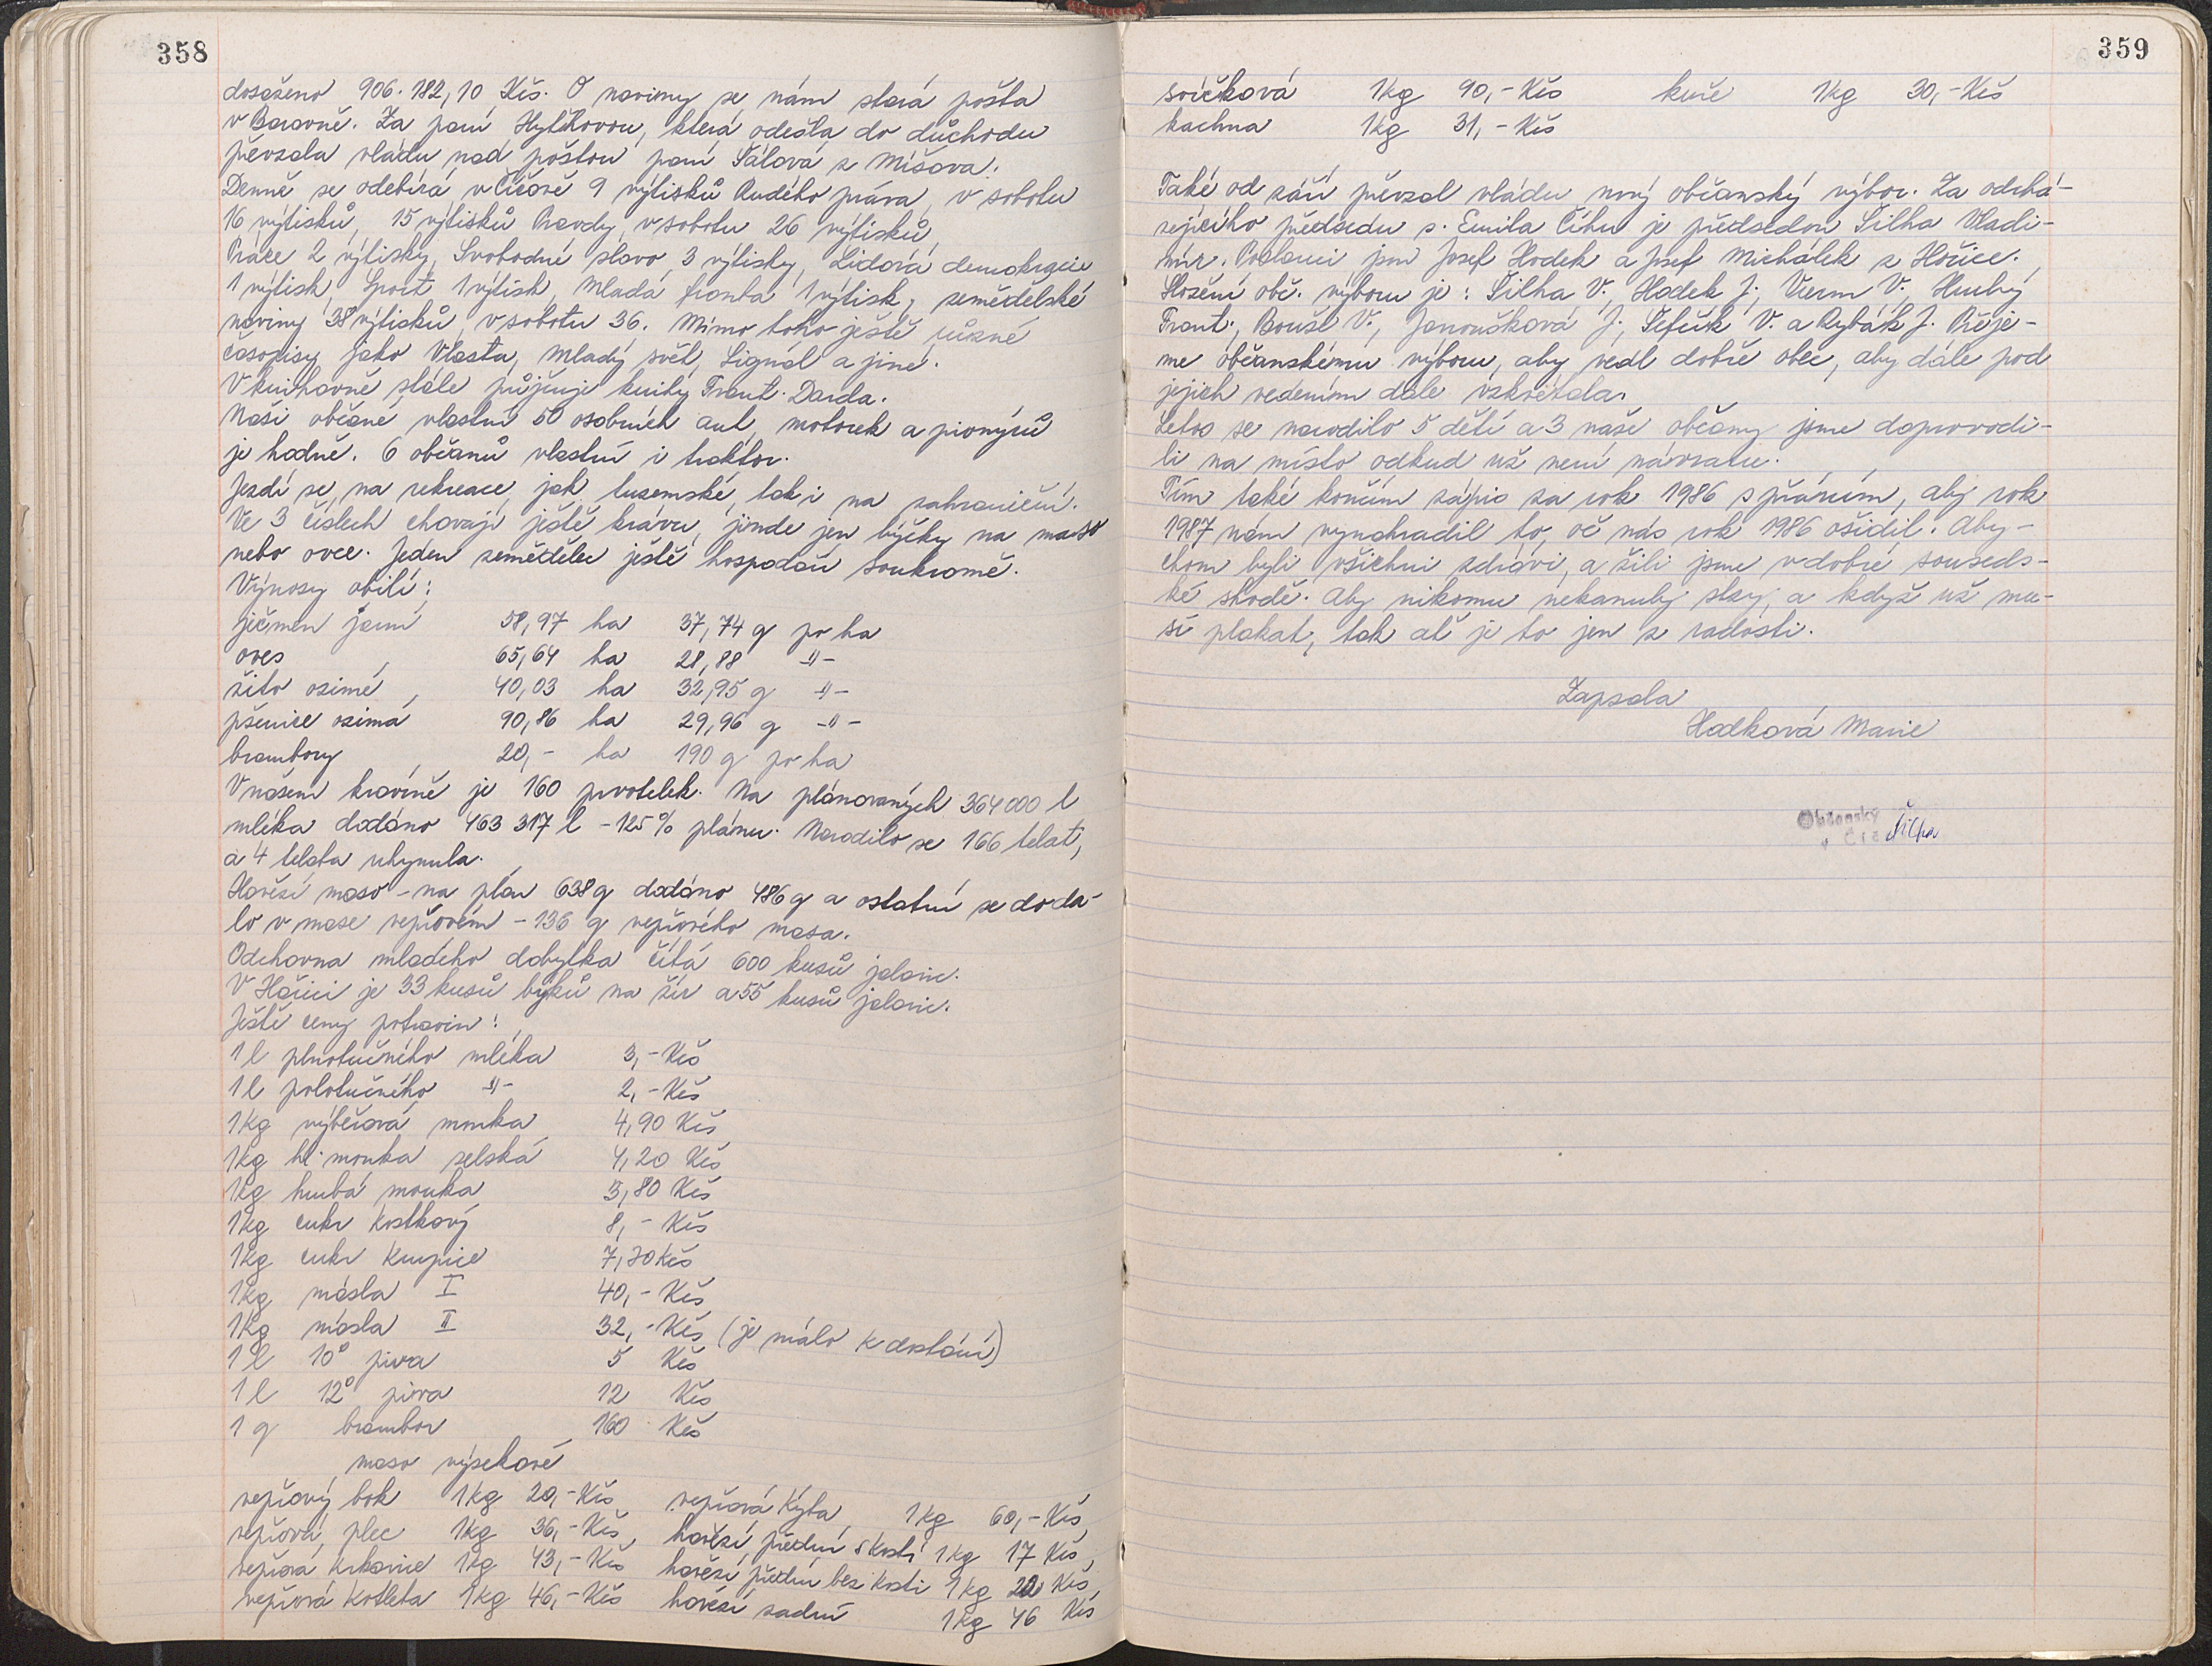 358
dosaženo 906.182,10 Kčs. O noviny se nám stará pošta
v Borovně. Za paní Hytkovou, která odešla do důchodu
převzala vládu nad poštou paní Šálová z Míšova.
Denně se odebírá v Číčově 9 výtisků Rudého práva, v sobotu
16 výtisků, 15 výtisků Pravdy, v sobotu 26 výtisků,
Práce 2 výtisky, Svobodné slovo 3 výtisky, Lidová demokracie
1 výtisk, Sport 1 výtisk, Mladá fronta 1 výtisk, zemědělské
noviny 38 výtisků, v sobotu 36. Mimo toho ještě různé
časopisy jako Vlasta, Mladý svět, Signál a jiné.
V knihovně stále půjčuje knihy Frant. Darda.
Naši občané vlastní 50 osobních aut, motorek a pionýrů
je hodně. 6 občanů vlastní i traktor.
Jezdí se na rekreace, jak tuzemské, tak i na zahraniční.
Ve 3 číslech chovají ještě krávu, jinde jen býčky na maso
nebo ovce. Jeden zemědělec ještě hospodaří soukromě.
Výnosy obilí:
ječmen jarní 58,97 ha 37,74 q po ha
oves , 65,64 ha 28,88 -"-
žito ozimé , 40,03 ha 32,95 q -"-
pšenice ozimá 90,86 ha 29,96 q -"-
brambory , 20,- ha 190 q po ha
V našem kravíně je 160 prvotelek. Na plánovaných 364000 l
mléka dodáno 463 317 l - 125% plánu. Narodilo se 166 telat,
a 4 telata uhynula.
Hovězí maso - na plán 638 q dodáno 486 q a ostatní se doda-
lo v mase vepřovém - 136 q vepřového masa.
Odchovna mladého dobytka čítá 600 kusů jalovic.
V Hořici je 33 kusů býků na žír a 55 kusů jalovic.
Ještě ceny potravin:
1 l plnotučného mléka 3,- Kčs
1 l polotučného -"- 2,- Kčs
1 kg výběrová mouka 4,90 Kčs
1 kg hl. mouka selská 4,20 Kčs
1 kg hrubá mouka 3,80 Kčs
1 kg cukr kostkový 8,- Kčs
1 kg cukr krupice 7,30 Kčs
1 kg másla I 40,- Kčs
1 kg másla II 32,- Kčs (je málo k dostání)
1 l 10° piva 5 Kčs
1 l 12° piva 12 Kčs
1 q brambor 160 Kčs
maso výsekové
vepřový bok 1 kg 20,- Kčs, vepřová kýta, 1 kg 60,- Kčs,
vepřová plec 1 kg 36,- Kčs, hovězí přední s kostí 1 kg 17 Kčs,
vepřová krkovice 1 kg 43,- Kčs hovězí přední bez kosti 1 kg Kčs,
vepřová kotleta 1 kg 46,- Kčs hovězí zadní 1 kg 46 Kčs
359
svíčková 1 kg 90,- Kčs kuře 1 kg 30,- Kčs
kachna 1 kg 31,- Kčs
Také od září převzal vládu nový občanský výbor. Za odchá-
zejícího předsedu s. Emila Číhu je předsedou Šilha Vladi-
mír. Poslanci jsou Josef Hodek a Josef Michálek z Hořice.
Složení obč. výboru je: Šilha V., Hodek J., V., Hrubý
Frant., Boušl V., Janoušková J., Šefčík V. a Rybák J. Přeje-
me občanskému výboru, aby vedl dobře obec, aby dále pod
jejich vedením dále vzkvétala.
Letos se narodilo 5 dětí a 3 naše občany jsme doprovodi-
li na místo odkud už není návratu.
Tím také končím zápis za rok 1986 s přáním, aby rok
1987 nám vynahradil to, oč nás rok 1986 ošidil. Aby-
chom byli všichni zdrávi, a žili jsme v dobré souseds-
ké shodě. Aby nikomu nekanuly slzy, a když už mu-
sí plakat, tak ať je to jen z radosti.
Zapsala
Hodková Marie
Občanský
v Číč Šilha